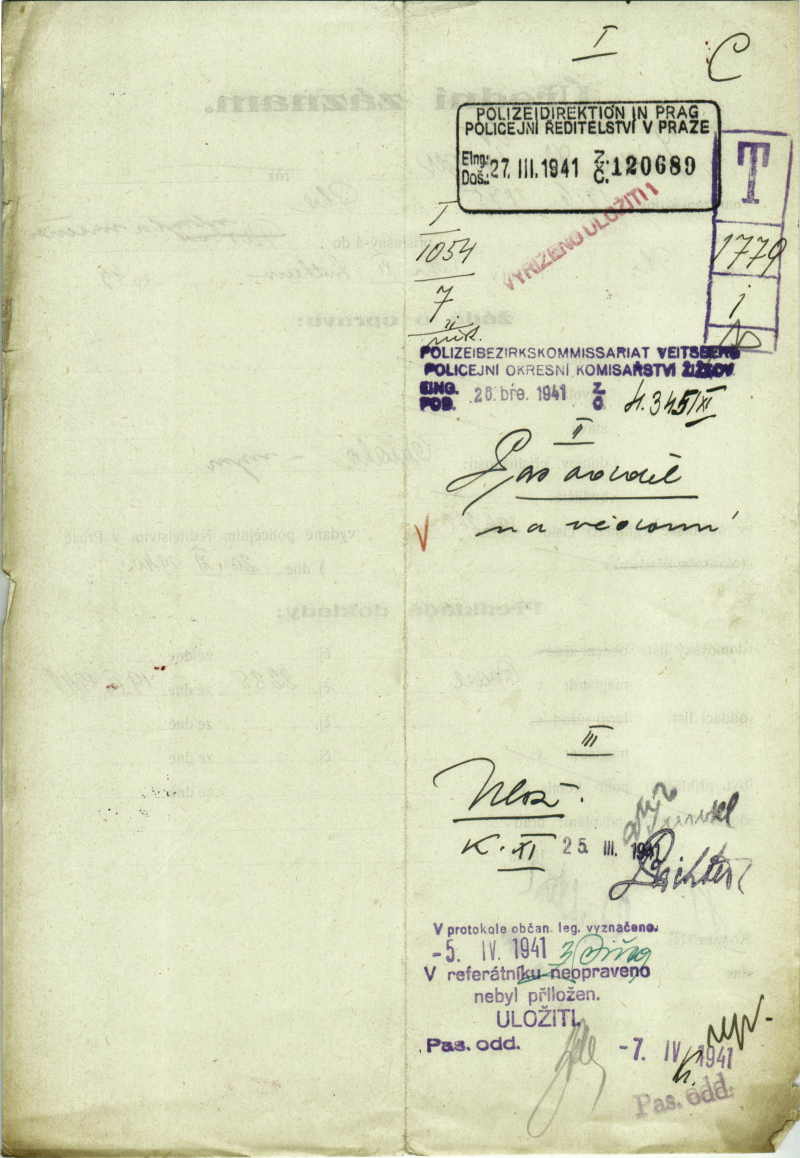 I
C
POLIZEIDIREKTION IN PRAG
POLICEJNÍ ŘEDITELSTVÍ V PRAZE
Eing.: Z.:
Doš.: 27. III. 1941 Č. 120689
T
VYŘÍZENO ULOŽITI
I
1054
7
1779
i
POLIZEIBEZIRKSKOMMISSARIAT VEITSBERG
POLICEJNÍ OKRESNÍ KOMISAŘSTVÍ ŽIŽKOV
EING. Z
POD. 26. bře. 1941 Č. 4.345/XI
II
Pas. odděl
na vědomí
V
III
Ulož.
K. XI 25. III. 1941
Richter
V protokole občan. leg. vyznačeno.
-5. IV. 1941
V referátníku neopraveno
nebyl přiložen.
ULOŽITI.
Pas. odd. -7. IV 1941
K.
Pas. odd.